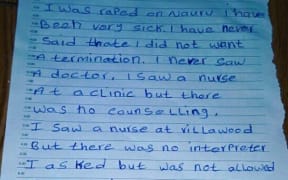 I was raped on Nauru i have
Been very sick. I have never
Said thate I did not want
A termination. I never saw
A doctor. I saw a nurse
At a clinic but there
was no counselling.
I saw a nurse at villawood
But there was no interpreter
I asked but was not allowed